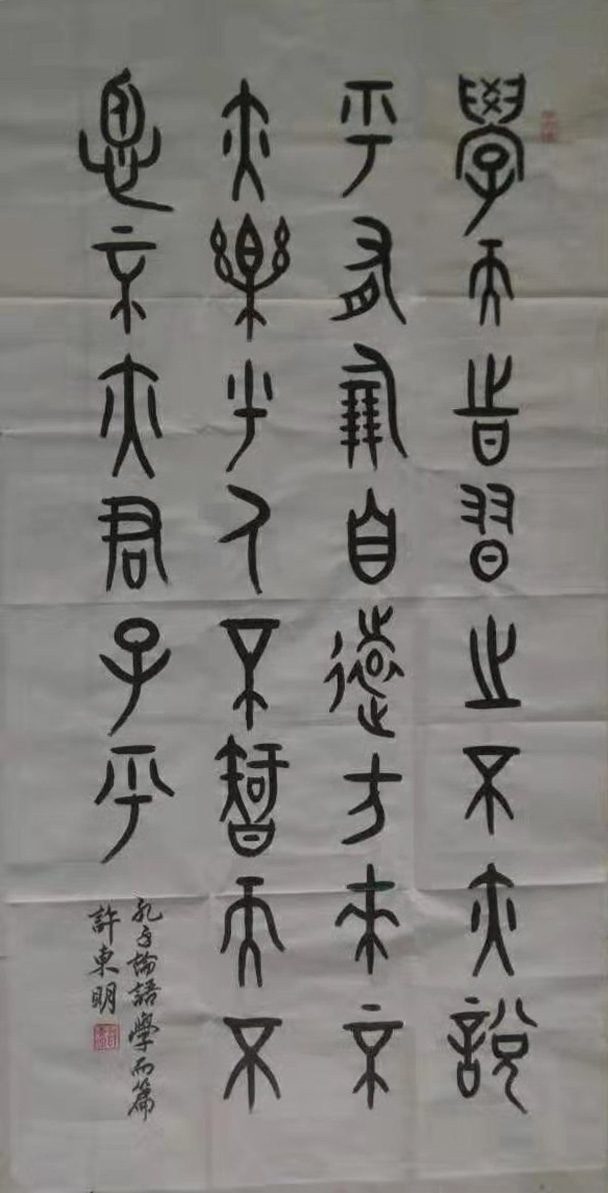 學而時習之不亦說
乎有朋自遠方來不
亦樂乎人不知而不
慍不亦君子乎
孔子論語學而篇
許東明